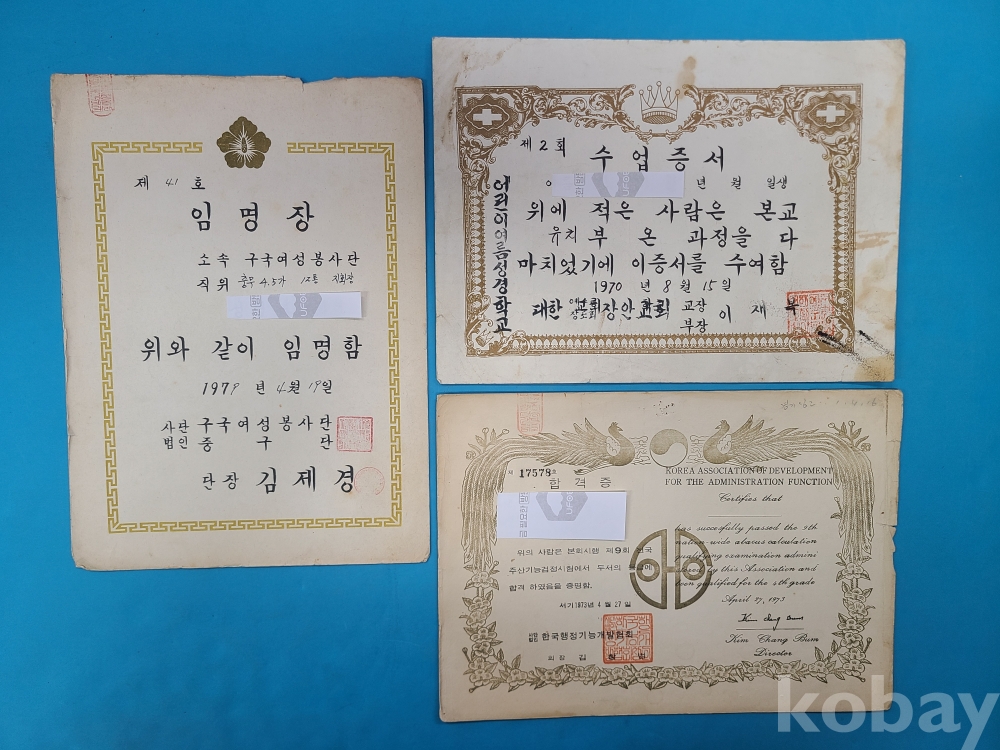 제 41 호
임명장
소속 구국여성봉사단
직위 충무 4.5가 12통 지회장
위와 같이 임명함
1979 년 4월 19일
사단
법인
구국여성봉사단
중 구 단
단장 김제경
제2회
수업증서
년 월 일생
어린이여름성경학교
위에 적은 사람은 본교
유치부 온 과정을 다
마치었기에 이증서를 수여함
1970 년 8 월 15일
대한 장안교회 교장
부장
이 재
제 17578호
합격증
위의 사람은 본회시행 제9회 전국
주산기능검정시험에서 두서의
합격 하였음을 증명함.
서기1973년 4 월 27 일
사단
법인
한국행정기능개발협회
회장 김 창 범
KOREA ASSOCIATION OF DEVELOPMENT
FOR THE ADMINISTRATION FUNCTION
Certifies that
has succesfully passed the 9th
nation-wide abacus calculation
qualifying examination admini
stered by this Association and
been qualified for the 4th grade
April 27, 1973
Kim Chang Bum
Kim Chang Bum
Director
kobay